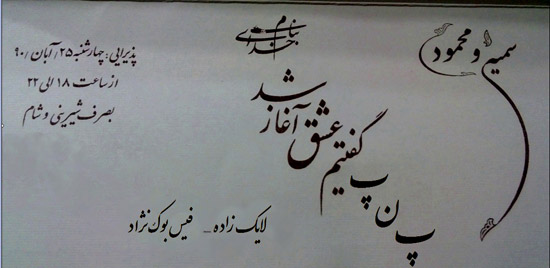 بنام خدای
سمیه و محمود
پ ن پ گفتیم عشق آغاز شد
پذیرایی: چهارشنبه ۲۵/ آبان /۹۰
از ساعت ۱۸ الی ۲۲
بصرف شیرینی و شام
لایک زاده _ فیس بوک نژاد